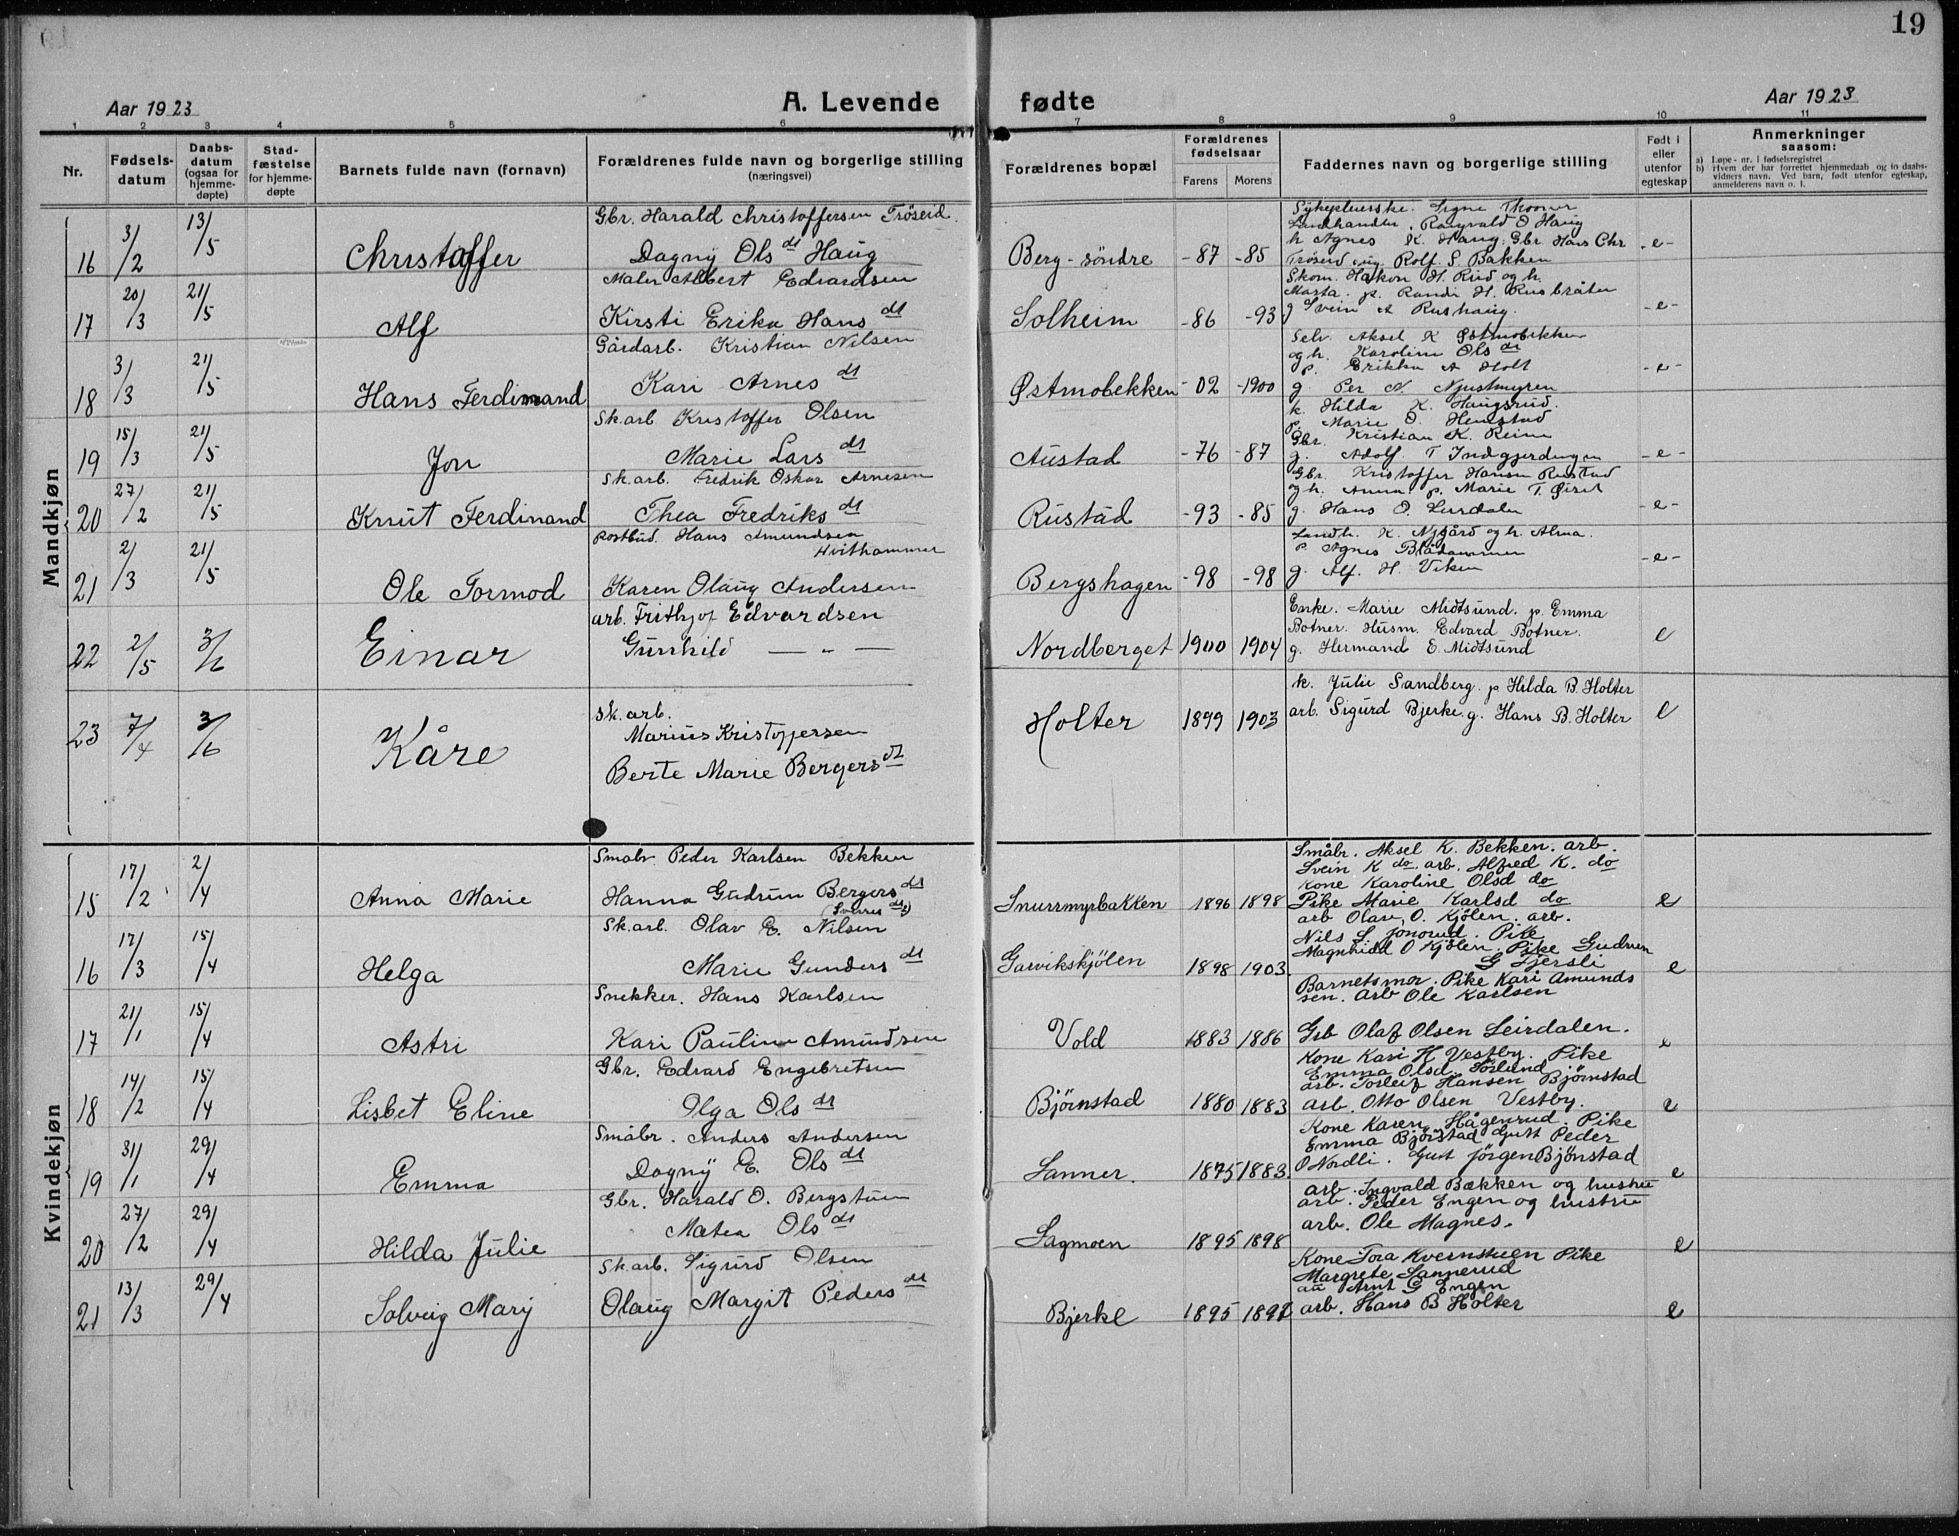 19
Aar 1923 A. Levende fødte Aar 1923
1 2 3 4 5 6 7 8 9 10 11
Nr. Fødselsdatum Daabsdatum (ogsaa for hjemmedøpte) Stadfæstelse for hjemmedøpte Barnets fulde navn (fornavn) Forældrenes fulde navn og borgerlige stilling (næringsvei) Forældrenes bopæl Forældrenes fødselsaar Farens Morens Faddernes navn og borgerlige stilling Født i eller utenfor egteskap Anmerkninger saasom:
a) Løpe-nr. i fødselsregistret
b) Hvem der har forrettet hjemmedaab og to daabsvidners navn. Ved barn, født utenfor egteskap, anmelderens navn o. l.
Mandkjøn
Gbr. Harald Christoffersen Trøseid. Sykepleierske. Signe Thoner
Landhandler. Rangvald O Haug
16 3/2 13/5 Christoffer Dagny Olsdt Haug Berg-søndre -87 -85 h Agnes K. Haug. Gbr Hans Chr -e-
Trøseid ug. Rolf. S. Bakken
Maler Albert Edvardsen Skom. Håkon H. Rud og h.
Marta. p. Randi H. Rusbråten
17 20/3 21/5 Alf Kirsti Erika Hansdt Solheim -86 -93 g Svein A Rushaug. -e-
Gårdarb. Kristian Nilsen Selv. Aksel K Østmobekken
og h. Karoline Olsdt
p. Erikka A Holt
18 3/3 21/5 Hans Ferdinand Kari Arnesdt Østmobekken -02 -1900 g. Per N. Njustmyren -e-
Sk.arb Kristoffer Olsen k. Hilda K. Haugsrud.
p. Marie O. Hemstad
Gbr. Kristian K. Reim
19 15/3 21/5 Jon Marie Larsdt Austad -76 -87 g. Adolf T Indgjerdingen -e-
Sk.arb. Fredrik Oskar Arnesen Gbr. Kristoffer Hansen Rustad
og h. Anna. p. Marie T. Øiset
20 27/2 21/5 Knut Ferdinand Thea Fredriksdt Rustad -93 -85 g. Hans O. Lurdalen -e-
Postbud. Hans Amundsen Hvithammer Landh. K. Nygård og h. Alma.
p. Agnes Blådammen
21 2/3 21/5 Ole Tormod Karen Olaug Andersen Bergshagen -98 -98 g. Alf. H. Viken -e-
arb. Frithjof Edvardsen Enke. Marie Midtsund. p. Emma
Botner. Husm. Edvard Botner.
22 2/5 3/6 Einar Gunhild — „ — Nordberget 1900 1904 g. Hermand E. Midtsund e
k. Julie Sandberg. p Hilda B. Holter
23 7/4 3/6 Kåre Sk.arb. Marius Kristoffersen Holter 1899 1903 arb. Sigurd Bjerke g. Hans B. Holter e
Berte Marie Bergersdt
Kvindekjøn
Småbr. Peder Karlsen Bekken Småbr. Aksel K. Bekken. arb.
Svein K do. arb. Alfred K. do
Kone Karoline Olsd do
15 17/2 2/4 Anna Marie Hanna Gudrun Bergersdt Snurrmyrbakken 1896 1898 Pike Marie Karlsd do e
arb Olav, O. Kjølen. arb.
Sk.arb. Olav E. Nilsen Nils S Jonsrud. Pike
Magnhild O Kjølen. Pike Gudrun
16 17/3 15/4 Helga Marie Gundersdt Garvikskjølen 1898 1903 G Fjersli e
Snekker. Hans Karlsen Barnets mor. Pike Kari Amunds
sen. arb Ole Karlsen
17 21/1 15/4 Astri Kari Pauline Amundsen Vold 1883 1886 Grb Olaf Olsen Leirdalen. e
Gbr. Edvard Engebretsen Kone Kari H Vestby. Pike
Emma Olsd. Sørlund
arb. Torleif Hansen Bjørnstad
18 14/2 15/4 Lisbet Eline Olga Olsdt Bjørnstad 1880 1883 arb. Otto Olsen Vestby. e
Småbr. Anders Andersen Kone Karen Hågenrud. Pike
Emma Bjørstad Gutt Peder
19 31/1 29/4 Emma Dagny E. Olsdt Sanner. 1875 1883. O Nordli. Gut Jörgen Bjønstad e
Gbr. Harald O. Bergstuen arb. Ingvald Bækken og hustru
arb. Peder Engen og hustru
20 27/2 29/4 Hilda Julie Matea Olsdt Sagmoen 1895 1898 arb. Ole Magnes. e
Sk.arb. Sigurd Olsen Kone Tora Kvernstuen Pike
Margrete Sannerud
Arnt G Engen
21 13/3 29/4 Solveig Mary Olaug Margit Pedersdt Bjerke 1895 arb. Hans B Holter e